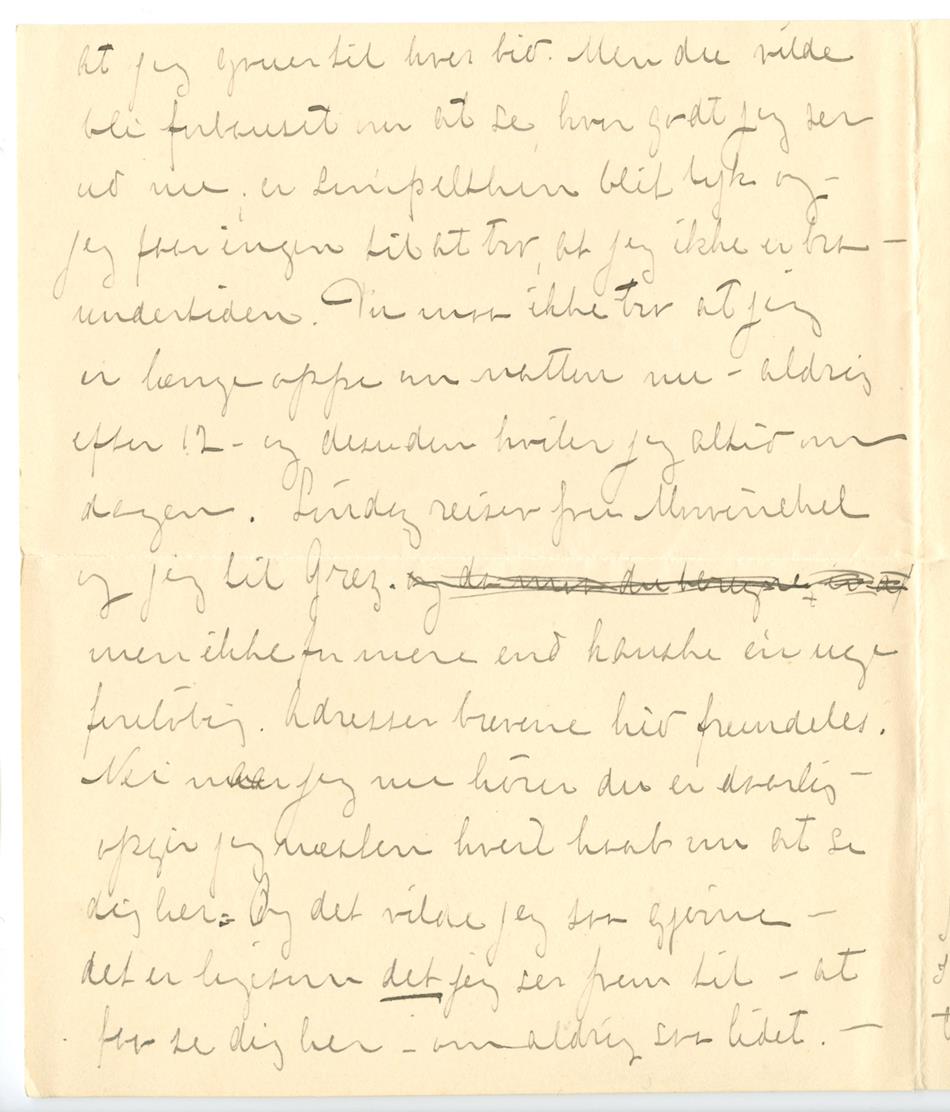 at jeg gruer til hver bid. Men du vilde
bli forbauset om at se, hvor godt jeg ser
ud nu, er simpelthen blit tyk og –
jeg faar ingen til at tro, at jeg ikke er bra –
undertiden. Du maa ikke tro at jeg
er længe oppe om natten nu – aldrig
efter 12 – og desuden hviler jeg altid om
dagen. Lindeg reiser fru
og jeg til Grez. og da maa du
men ikke for mere end kanske én uge
foreløbig. Adresser brevene hid fremdeles.
Nei naar jeg nu hører du er daarlig –
opgir jeg næsten hvert haab om at se
dig her. Og det vilde jeg saa gjerne –
det er ligesom det jeg ser frem til – at
faa se dig her – om aldrig saa lidet. –